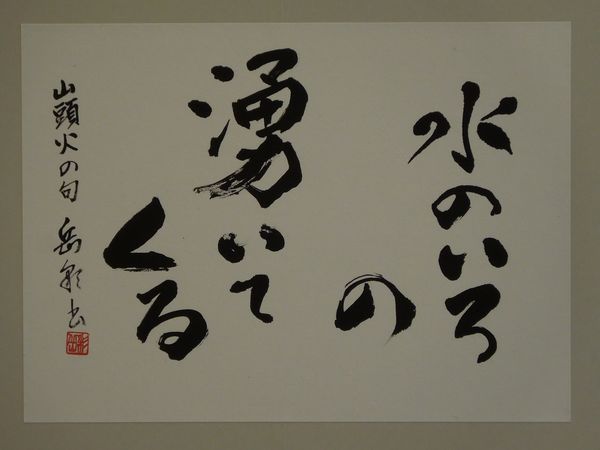 水のいろ
の
湧いて
くる
山頭火の句 岳彩書